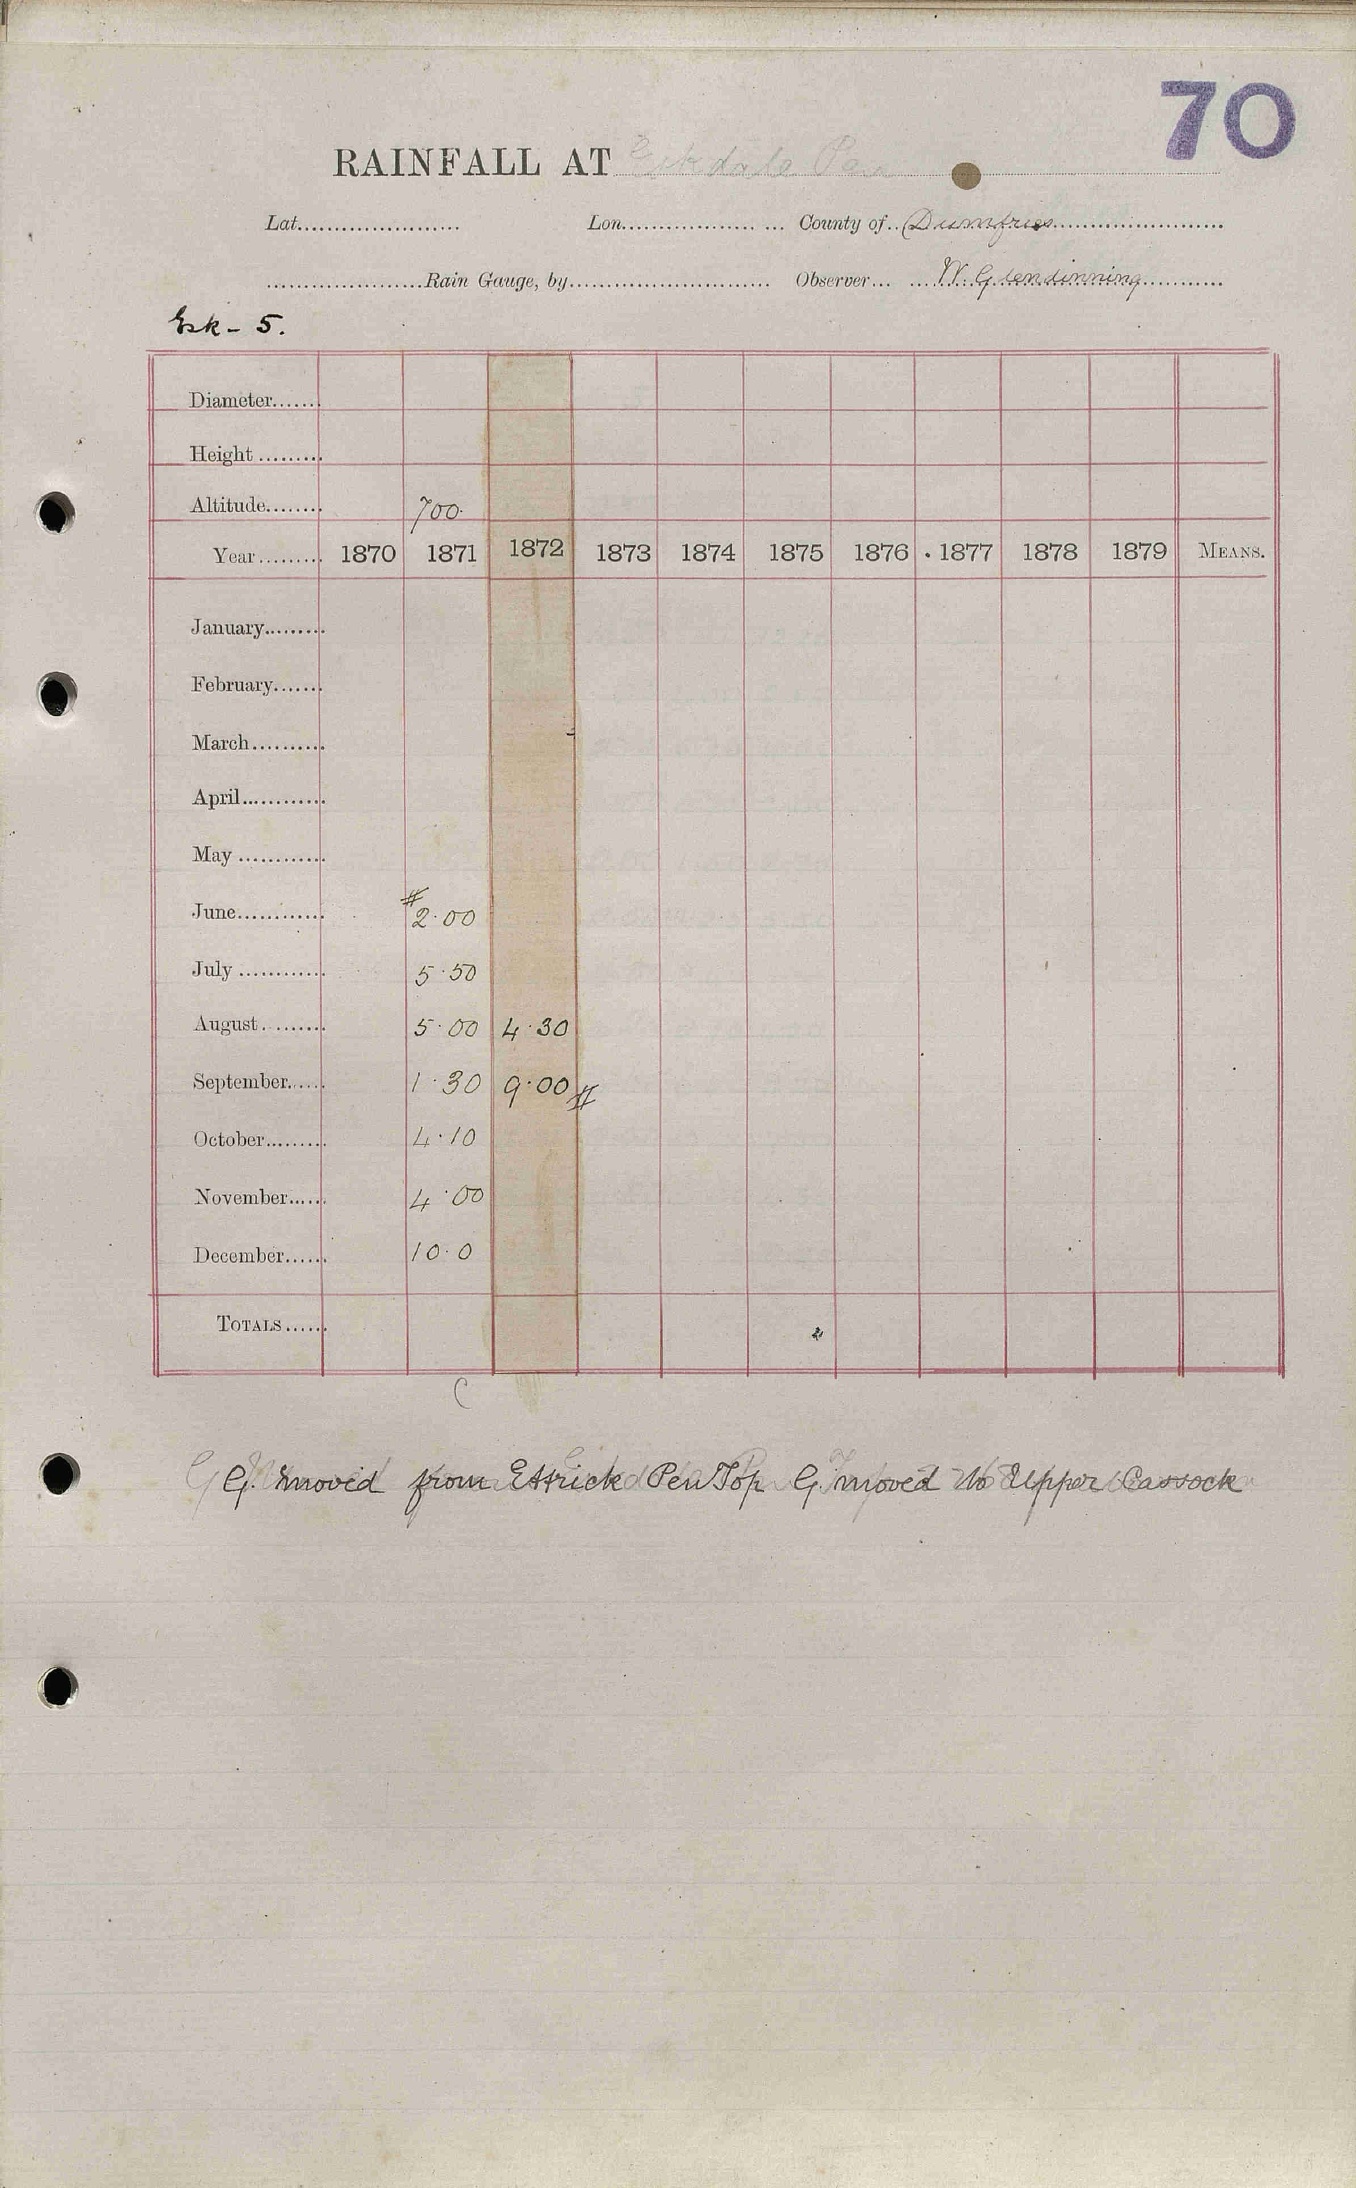 70
RAINFALL AT Eskdale Pen
Lat. Lon. County of Dumfries
Rain Gauge, by Observer W. Glendinning
Esk - 5.
Diameter
Height
Altitude 700
Year 1870 1871 1872 1873 1874 1875 1876 1877 1878 1879 MEANS.
January
February
March
April
May
June # 2.00
July 5.50
August 5.00 4.30
September 1.30 9.00 #
October 4.10
November 4.00
December 10.0
TOTALS
C
G. moved from Ettrick Pen Top G. moved to Upper Cassock